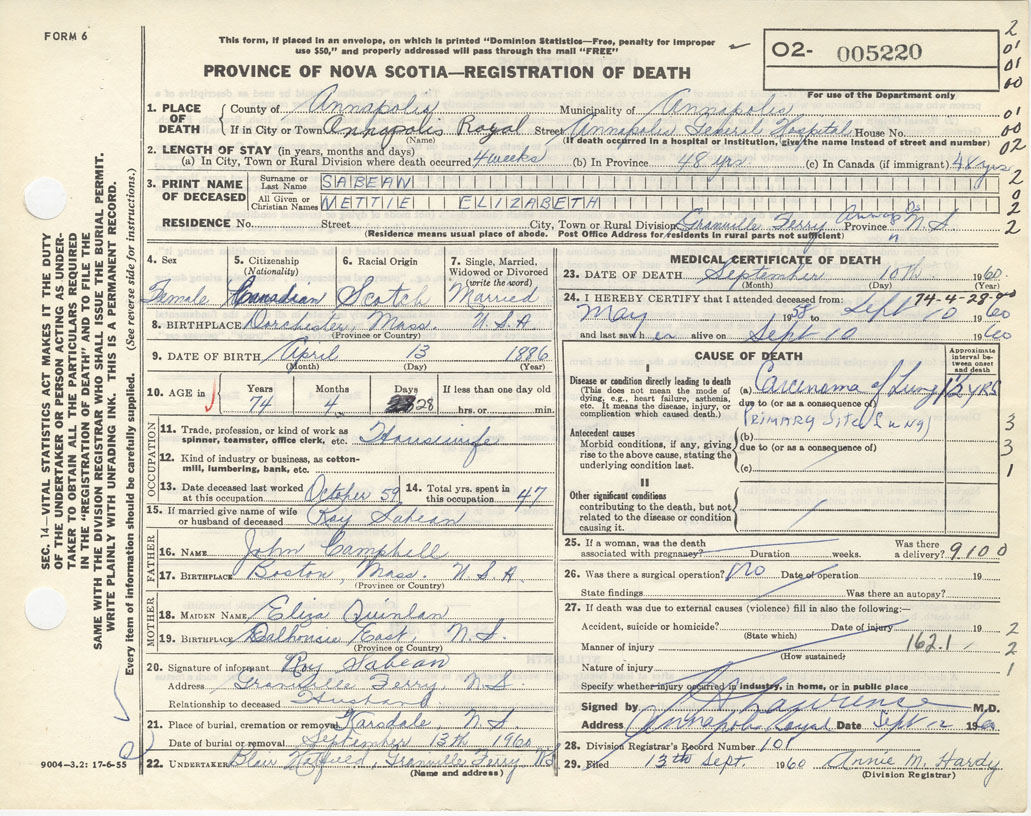 FORM 6
This form, if placed in an envelope, on which is printed "Dominion Statistics—Free, penalty for improper
use $50," and properly addressed will pass through the mail "FREE"
PROVINCE OF NOVA SCOTIA—REGISTRATION OF DEATH
02- 005220
For use of the Department only
2
01
01
00
1. PLACE OF DEATH
County of Annapolis Municipality of Annapolis 01
If in City or Town Annapolis Royal Street Annapolis General Hospital House No. 00
(Name) (If death occurred in a hospital or institution, give the name instead of street and number)
2. LENGTH OF STAY (in years, months and days) 02
(a) In City, Town or Rural Division where death occurred 4 weeks (b) In Province 48 yrs (c) In Canada (if immigrant) 48 yrs
3. PRINT NAME OF DECEASED
Surname or Last Name SABEAN 2
All Given or Christian Names NETTIE ELIZABETH 0
2
RESIDENCE No. Street City, Town or Rural Division Granville Ferry Province N.S. 2
(Residence means usual place of abode. Post Office Address for residents in rural parts not sufficient)
4. Sex
Female
5. Citizenship
(Nationality)
Canadian
6. Racial Origin
Scotch
7. Single, Married,
Widowed or Divorced
(write the word)
Married
8. BIRTHPLACE Dorchester, Mass. U.S.A
(Province or Country)
9. DATE OF BIRTH April 13 1886
(Month) (Day) (Year)
10. AGE in
Years Months Days If less than one day old
74 4 28 hrs. or min.
OCCUPATION
11. Trade, profession or kind of work as
spinner, teamster, office clerk, etc. Housewife
12. Kind of industry or business, as cotton-
mill, lumbering, bank, etc.
13. Date deceased last worked
at this occupation October 59
14. Total yrs. spent in
this occupation 47
15. If married give name of wife
or husband of deceased Roy Sabean
FATHER
16. NAME John Campbell
17. BIRTHPLACE Boston, Mass. U.S.A
(Province or Country)
MOTHER
18. MAIDEN NAME Eliza Quinlan
19. BIRTHPLACE Dalhousie East, N.S.
(Province or Country)
20. Signature of informant Roy Sabean
Address Granville Ferry, N.S.
Relationship to deceased Husband
21. Place of burial, cremation or removal Karsdale, N.S
Date of burial or removal September 13th 1960
22. UNDERTAKER Blair Hatfield, Granville Ferry NS
(Name and address)
MEDICAL CERTIFICATE OF DEATH
23. DATE OF DEATH September 10th 1960
(Month) (Day)
74-4-28-00
24. I HEREBY CERTIFY that I attended deceased from:
May 1958 to Sept 10 1960
and last saw her alive on Sept 10 1960
CAUSE OF DEATH
Approximate
interval between
onset
and death
I
Disease or condition directly leading to death
(This does not mean the mode of
dying, e.g., heart failure, asthenia,
etc. It means the disease, injury, or
complication which caused death.)
(a) Carcinoma of Lung 1/2 YRS
due to (or as a consequence of)
PRIMARY Site (Lung)
3
Antecedent causes
Morbid conditions, if any, giving
rise to the above cause, stating the
underlying condition last.
(b)
due to (or as a consequence of)
3
(c)
1
II
Other significant conditions
contributing to the death, but not
related to the disease or condition
causing it.
25. If a woman, was the death
associated with pregnancy? Duration weeks.
Was there
a delivery? 9100
26. Was there a surgical operation? No Date of operation 19
State findings Was there an autopsy?
27. If death was due to external causes (violence) fill in also the following:—
Accident, suicide or homicide? Date of injury 19 2
(State which)
Manner of injury 162.1 2
(How sustained)
Nature of injury 1
Specify whether injury occurred in industry, in home, or in public place
Signed by Lawrence M.D.
Address Annapolis Royal Date Sept 12 1960
28. Division Registrar's Record Number 108
29. Filed 13th Sept. 1960 Annie M. Hardy
(Division Registrar)
SEC. 14—VITAL STATISTICS ACT MAKES IT THE DUTY
OF THE UNDERTAKER OR PERSON ACTING AS UNDER-
TAKER TO OBTAIN ALL THE PARTICULARS REQUIRED
IN THE "REGISTRATION OF DEATH" AND TO FILE THE
SAME WITH THE DIVISION REGISTRAR WHO SHALL ISSUE THE BURIAL PERMIT.
WRITE PLAINLY WITH UNFADING INK. THIS IS A PERMANENT RECORD.
Every item of information should be carefully supplied. (See reverse side for instructions.)
9004—3.2: 17-6-55